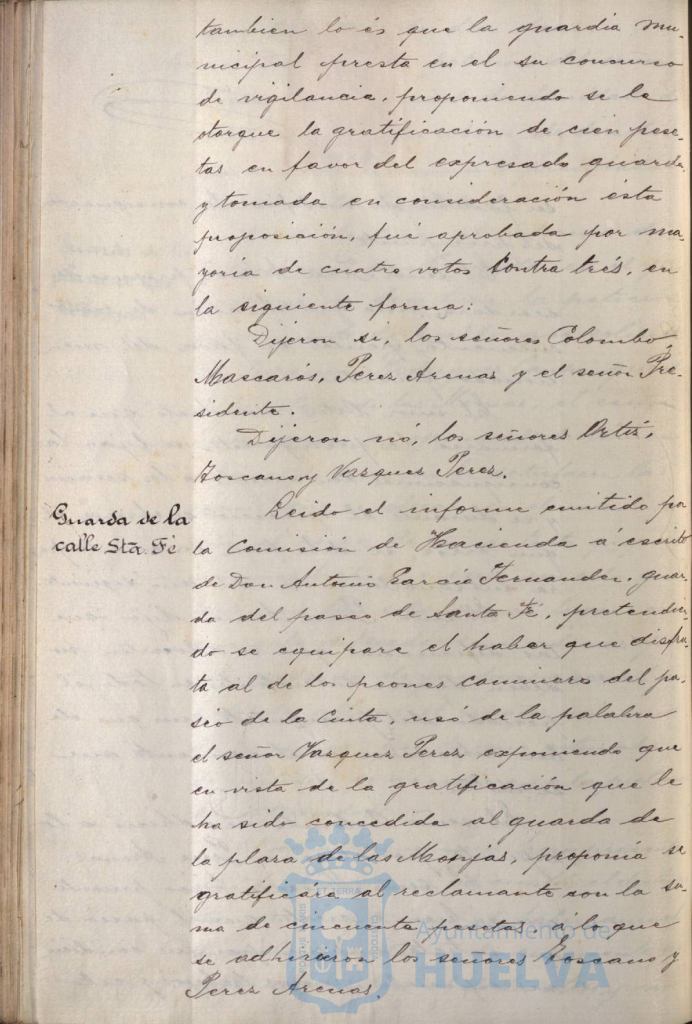 tambien lo és que la guardia mu-
nicipal presta en el su concurso
de vigilancia, proponiendo se le
otorgue la gratificación de cien pese-
tas en favor del expresado guarda,
y tomada en consideración ésta
proposición, fué aprobada por ma-
yoria de cuatro votos contra trés, en
la siguiente forma:
Dijeron si, los señores Colombo,
Mascarós, Perez Arenas y el señor Pre-
sidente.
Dijeron nó, los señores Ortiz,
Toscano y Vazquez Perez.
Guarda de la
calle Sta. Fé
Leido el informe emitido po
la Comisión de Hacienda á escrito
de Don Antonio Garcia Fernandez, guar-
da del paseo de Santa Fé, pretendien-
do se equipare el haber que disfru-
ta al de los peones camineros del pa-
seo de la Cinta, usó de la palabra
el señor Vazquez Perez exponiendo que
en vista de la gratificación que le
ha sido concedida al guarda de
la plaza de las Monjas, proponia se
gratificára al reclamante con la su-
ma de cincuenta pesetas, á lo que
se adhirieron los señores Toscano y
Perez Arenas.
Ayuntamiento de
HUELVA